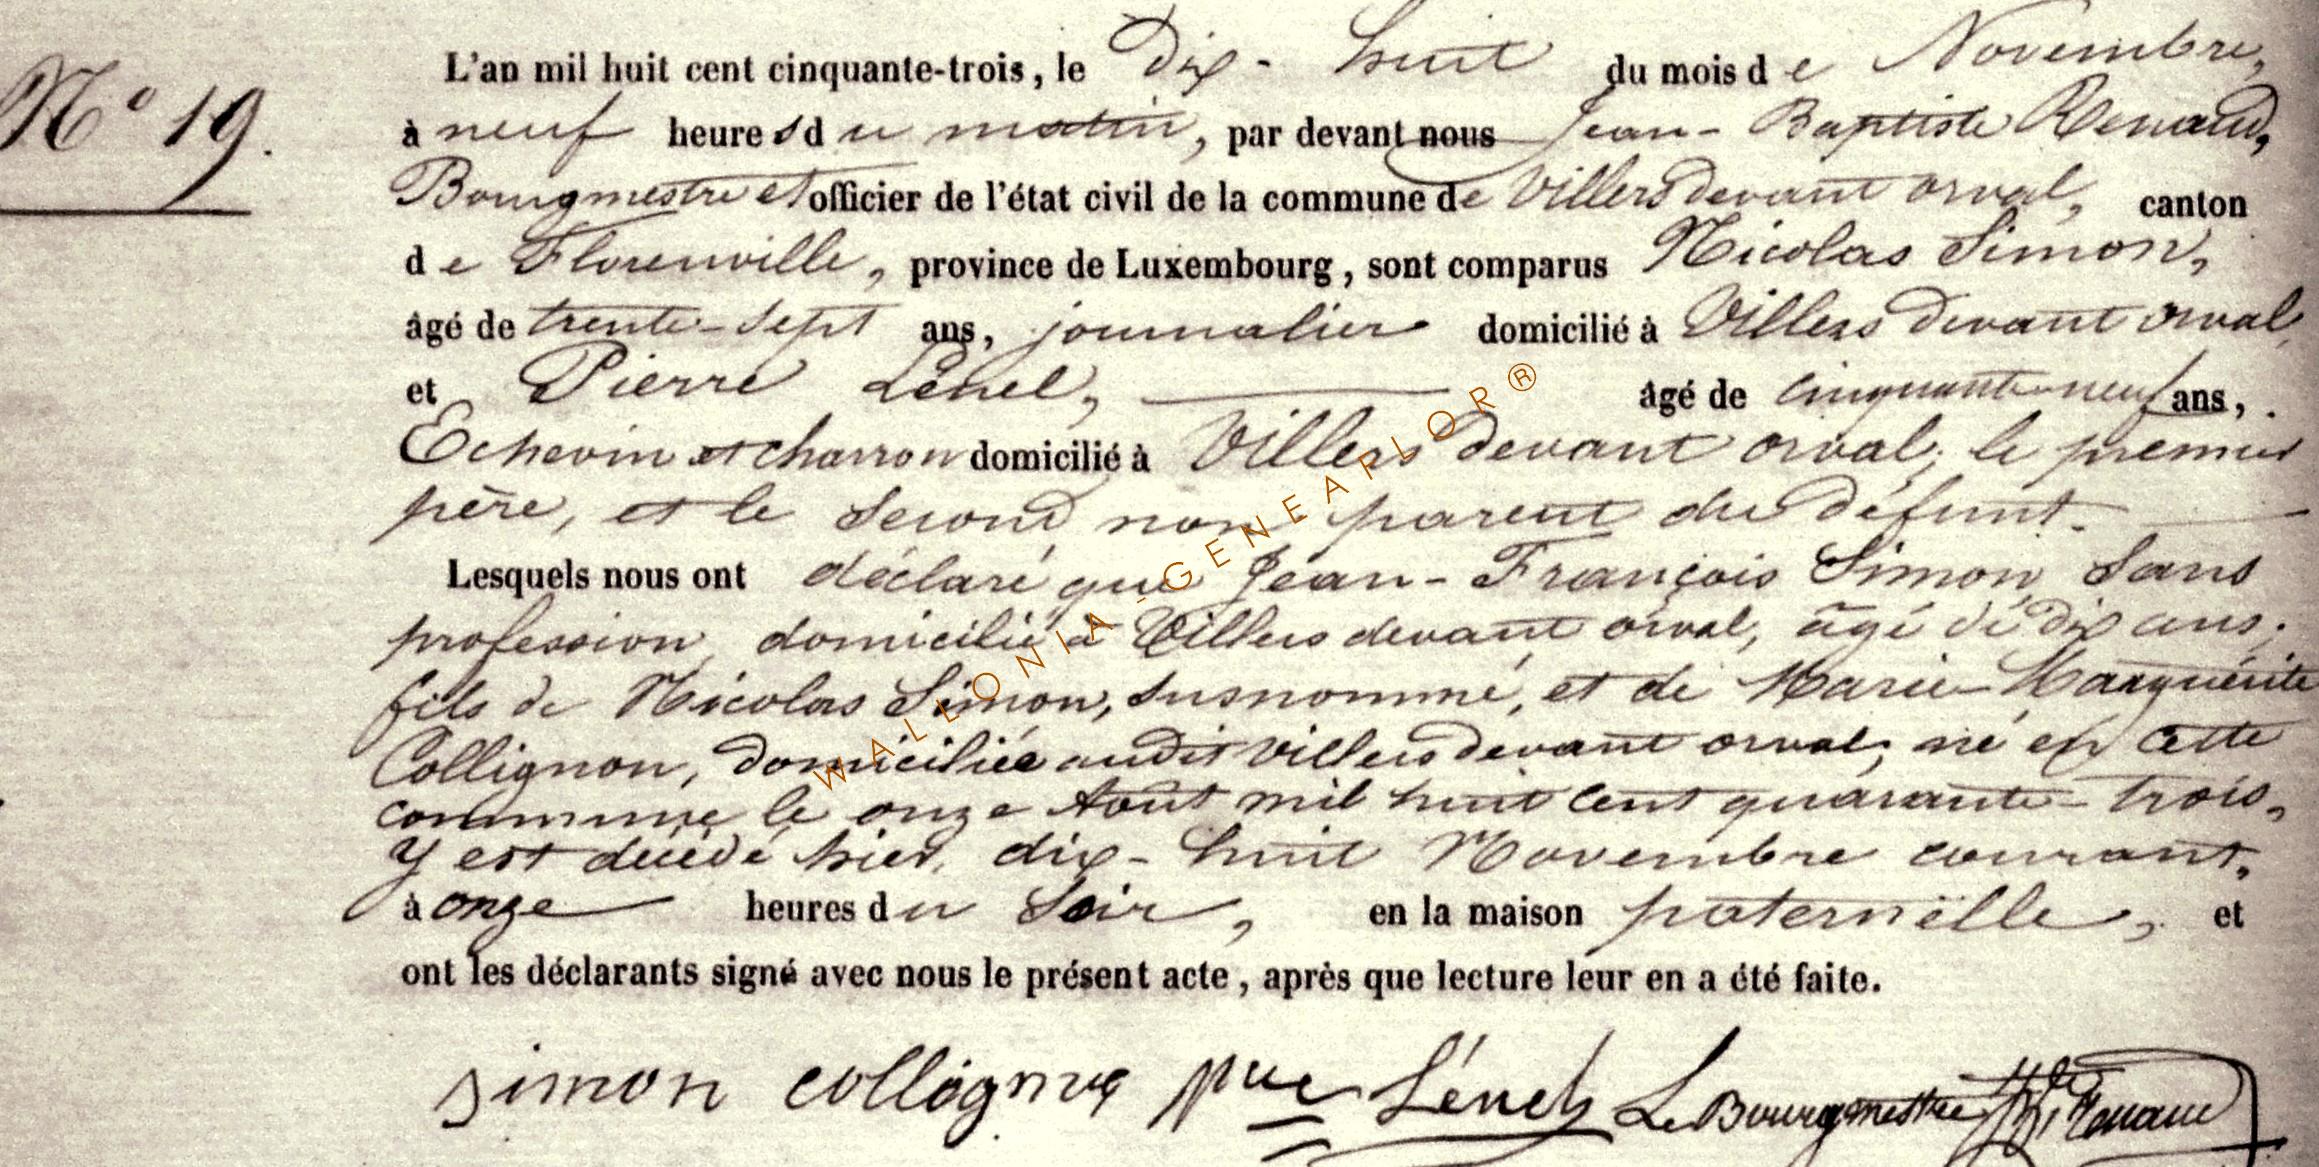 N° 19.
L'an mil huit cent cinquante-trois, le Dix-huit du mois de Novembre,
à neuf heures du matin, par devant nous Jean-Baptiste Renaud,
Bourgmestre et officier de l'état civil de la commune de Villers devant orval, canton
de Florenville, province de Luxembourg, sont comparus Nicolas Simon,
âgé de trente-sept ans, journalier domicilié à Villers devant orval,
et Pierre Lénel, âgé de cinquante-neuf ans,
Echevin et charron domicilié à Villers devant orval; le premier
père, et le second non parent du défunt.
Lesquels nous ont déclaré que Jean-François Simon, sans
profession, domicilié à Villers devant orval, âgé de dix ans;
fils de Nicolas Simon, susnommé, et de Marie-Marguérite
Collignon, domiciliée audit villers devant orval; né en cette
commune le onze Aout mil huit cent quarante-trois,
y est décédé hier, dix-huit Novembre courant,
à onze heures du soir, en la maison paternelle, et
ont les déclarants signé avec nous le présent acte, après que lecture leur en a été faite.
simon Lénel Le Bourgmestre Renaud
WALLONIA-GENEARLOR®